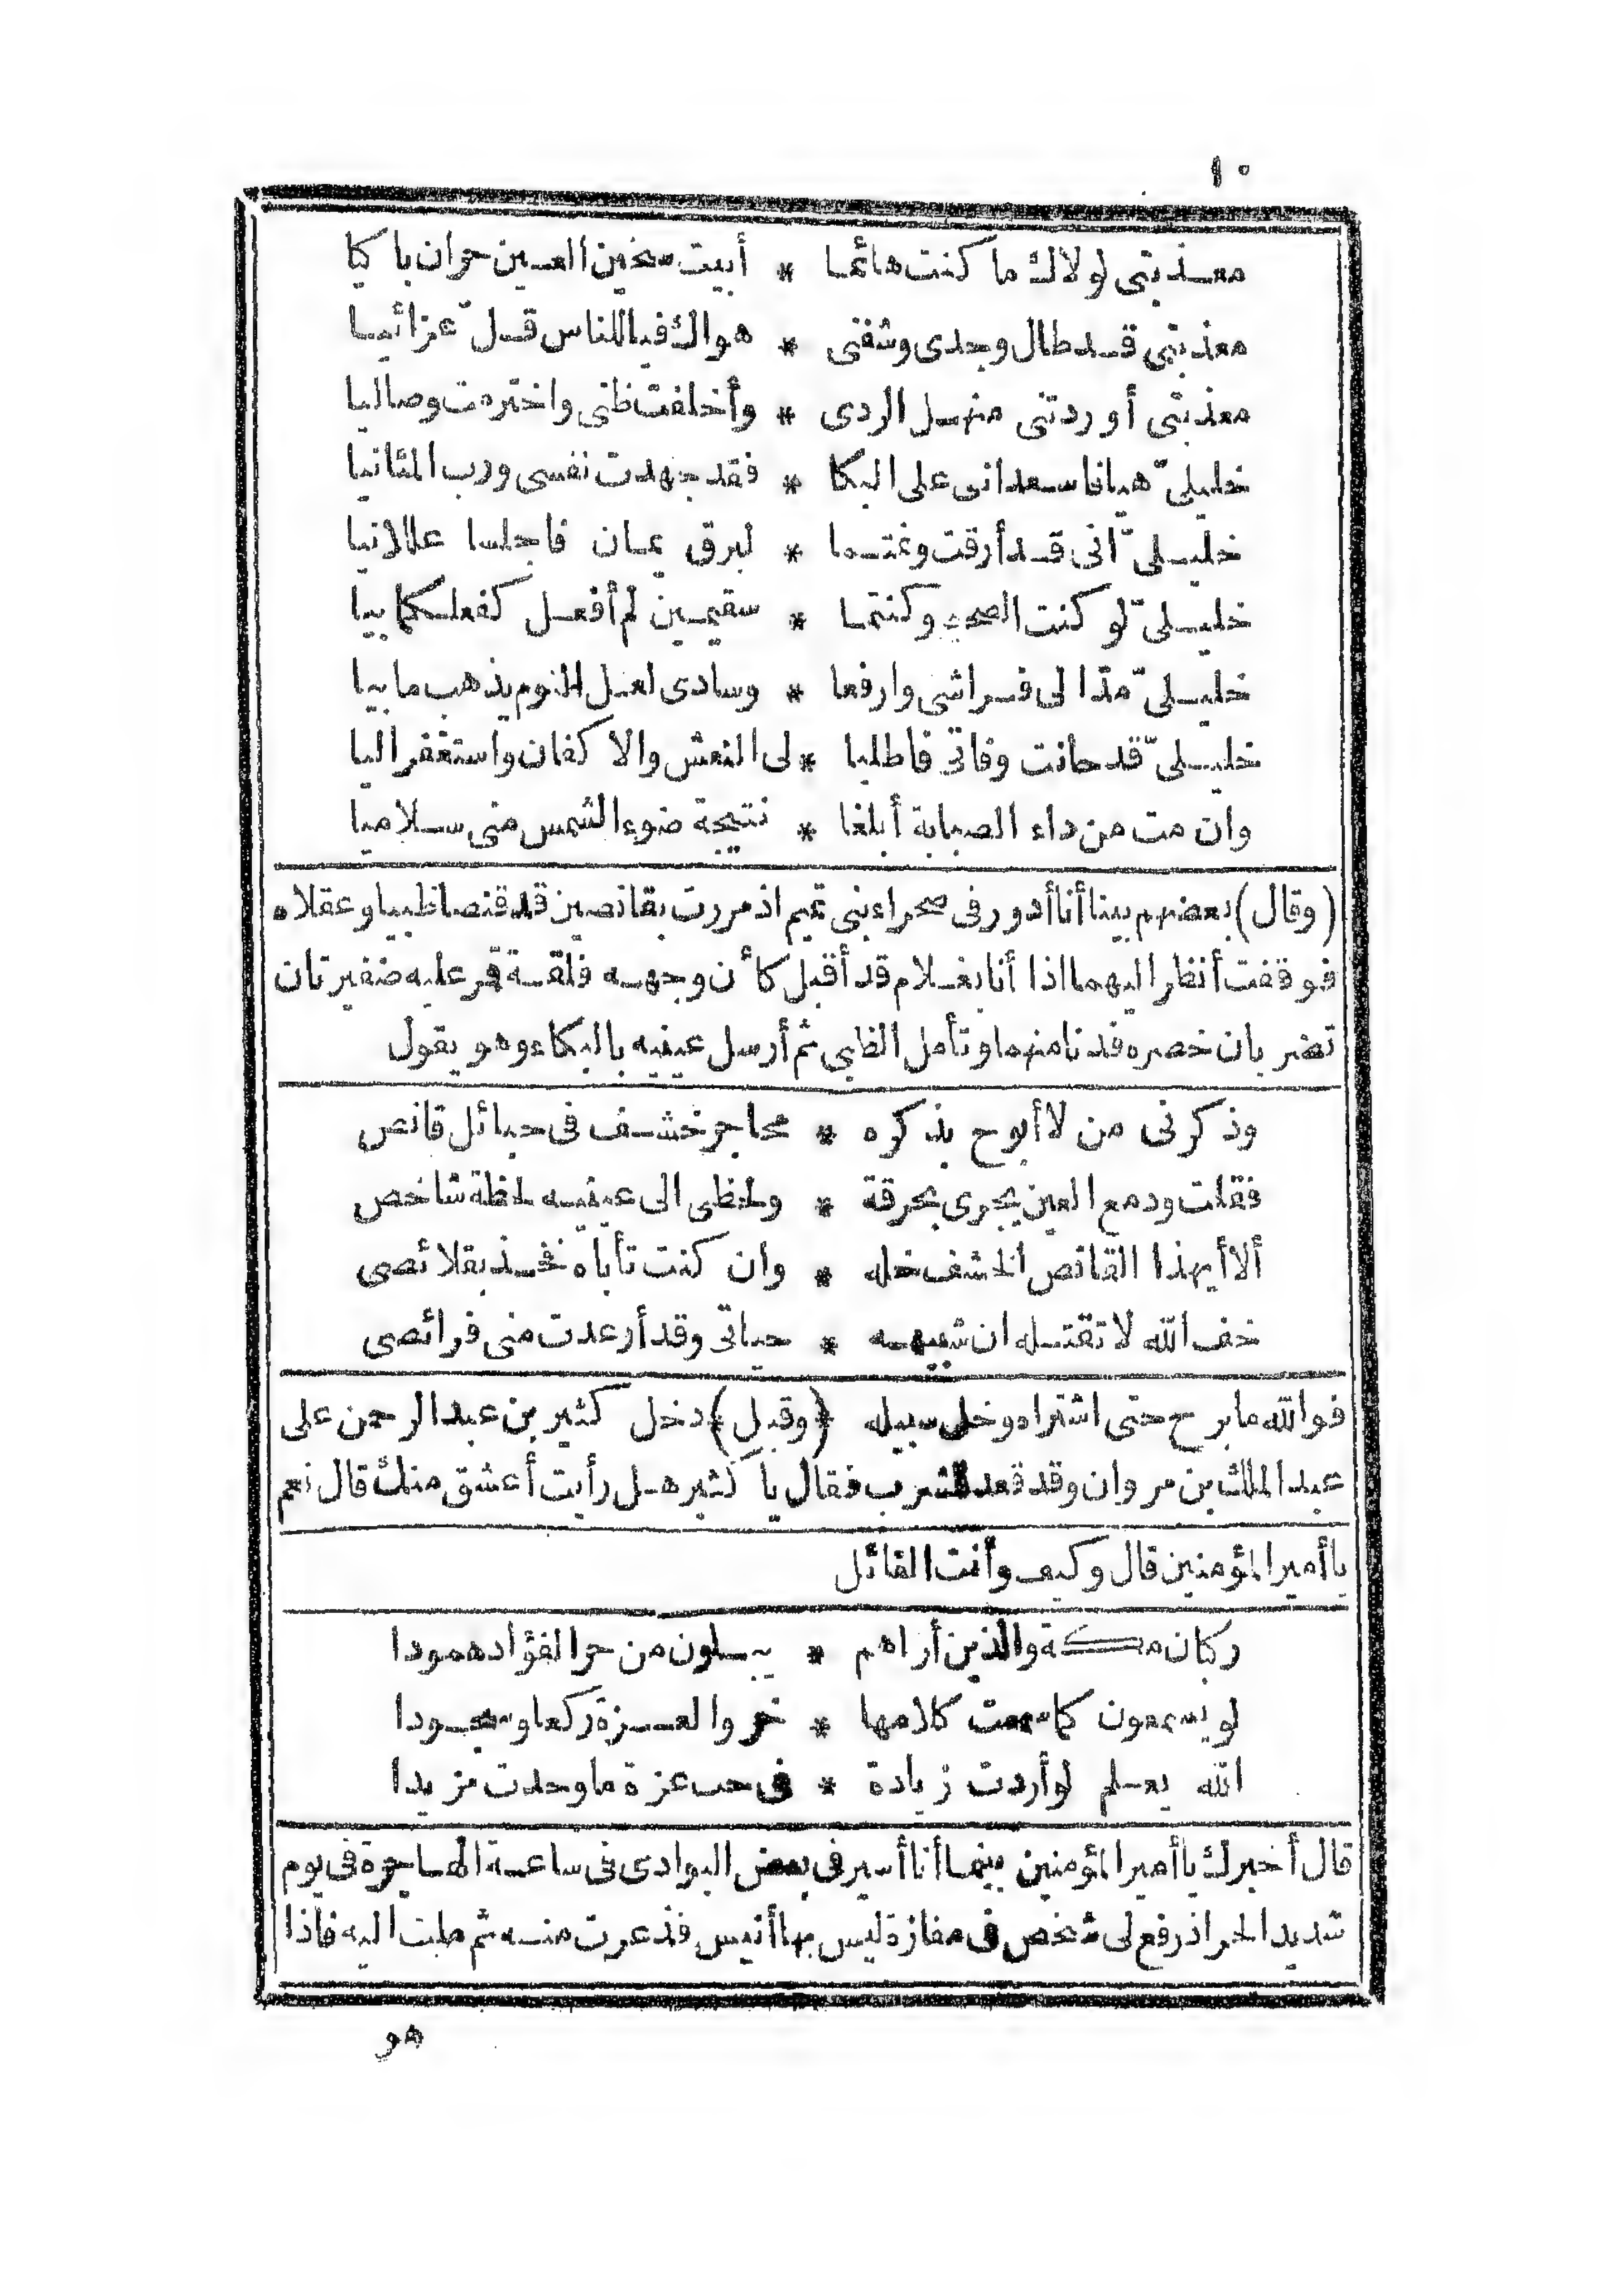 ١٠
معذبتى لولاك ما كنت هائما * أبيت سخين العين حران باكيا
معذبتى قد طال وجدى وشفنى * هواك فيا للناس قلّ عزائيا
معذبتى أوردتنى منهل الردى * وأخلفت ظنى واخترمت وصاليا
خليلىّ هيا فاسعدانى على البكا * فقد جهدت نفسى ورب المثانيا
خليلىّ انى قد أرقت ونمتما * لبرق يمان فاجلسا عللانيا
خليلىّ لو كنت الصحيح وكنتما * سقيمين لم أفعل كفعلكما بيا
خليلىّ مدّا لى فراشى وارفعا * وسادى لعل النوم يذهب ما بيا
خليلىّ قد حانت وفاتى فاطلبا * لى النعش والاكفان واستغفرا ليا
وان مت من داء الصبابة أبلغا * نتيجة ضوء الشمس منى سلاميا
(وقال) بعضهم بينا أنا أدور فى صحراء بنى تميم اذ مررت بقانصين قد قنصا ظبيا وعقلاه
فوقفت أنظر اليهما اذا أنا بغلام قد أقبل كأن وجهه فلقة قمر عليه ضفيرتان
تضربان خصره فدنا منهما وتأمل الظبى ثم أرسل عينيه بالبكاء وهو يقول
وذكرنى من لا أبوح بذكره * محاجر خشف فى حبائل قانص
فقلت ودمع العين يجرى بحرقة * ولحظى الى عينيه لحظة شاخص
ألا أيهذا القانص الخشف خله * وان كنت تأباه فخذ بقلائصى
خف الله لا تقتله ان شبيهه * حياتى وقد أرعدت منى فرائصى
فوالله ما برح حتى اشتراه وخلى سبيله (وقيل) دخل كثير بن عبد الرحمن على
عبد الملك بن مروان وقد قعد للشرب فقال يا كثير هل رأيت أعشق منك قال نعم
يا أمير المؤمنين قال وكيف وأنت القائل
ركان مكة والذين أراهم * يسلون من حر الفؤاد همودا
لو يسمعون كما سمعت كلامها * خروا لعزة ركعا وسجودا
الله يعلم لو أردت زيادة * فى حب عزة ما وجدت مزيدا
قال أخبرك يا أمير المؤمنين بينما أنا أسير فى بعض البوادى فى ساعة الهاجرة فى يوم
شديد الحر اذ رفع لى شخص فى مفازة ليس بها أنيس فذعرت منه ثم ملت اليه فاذا
هو